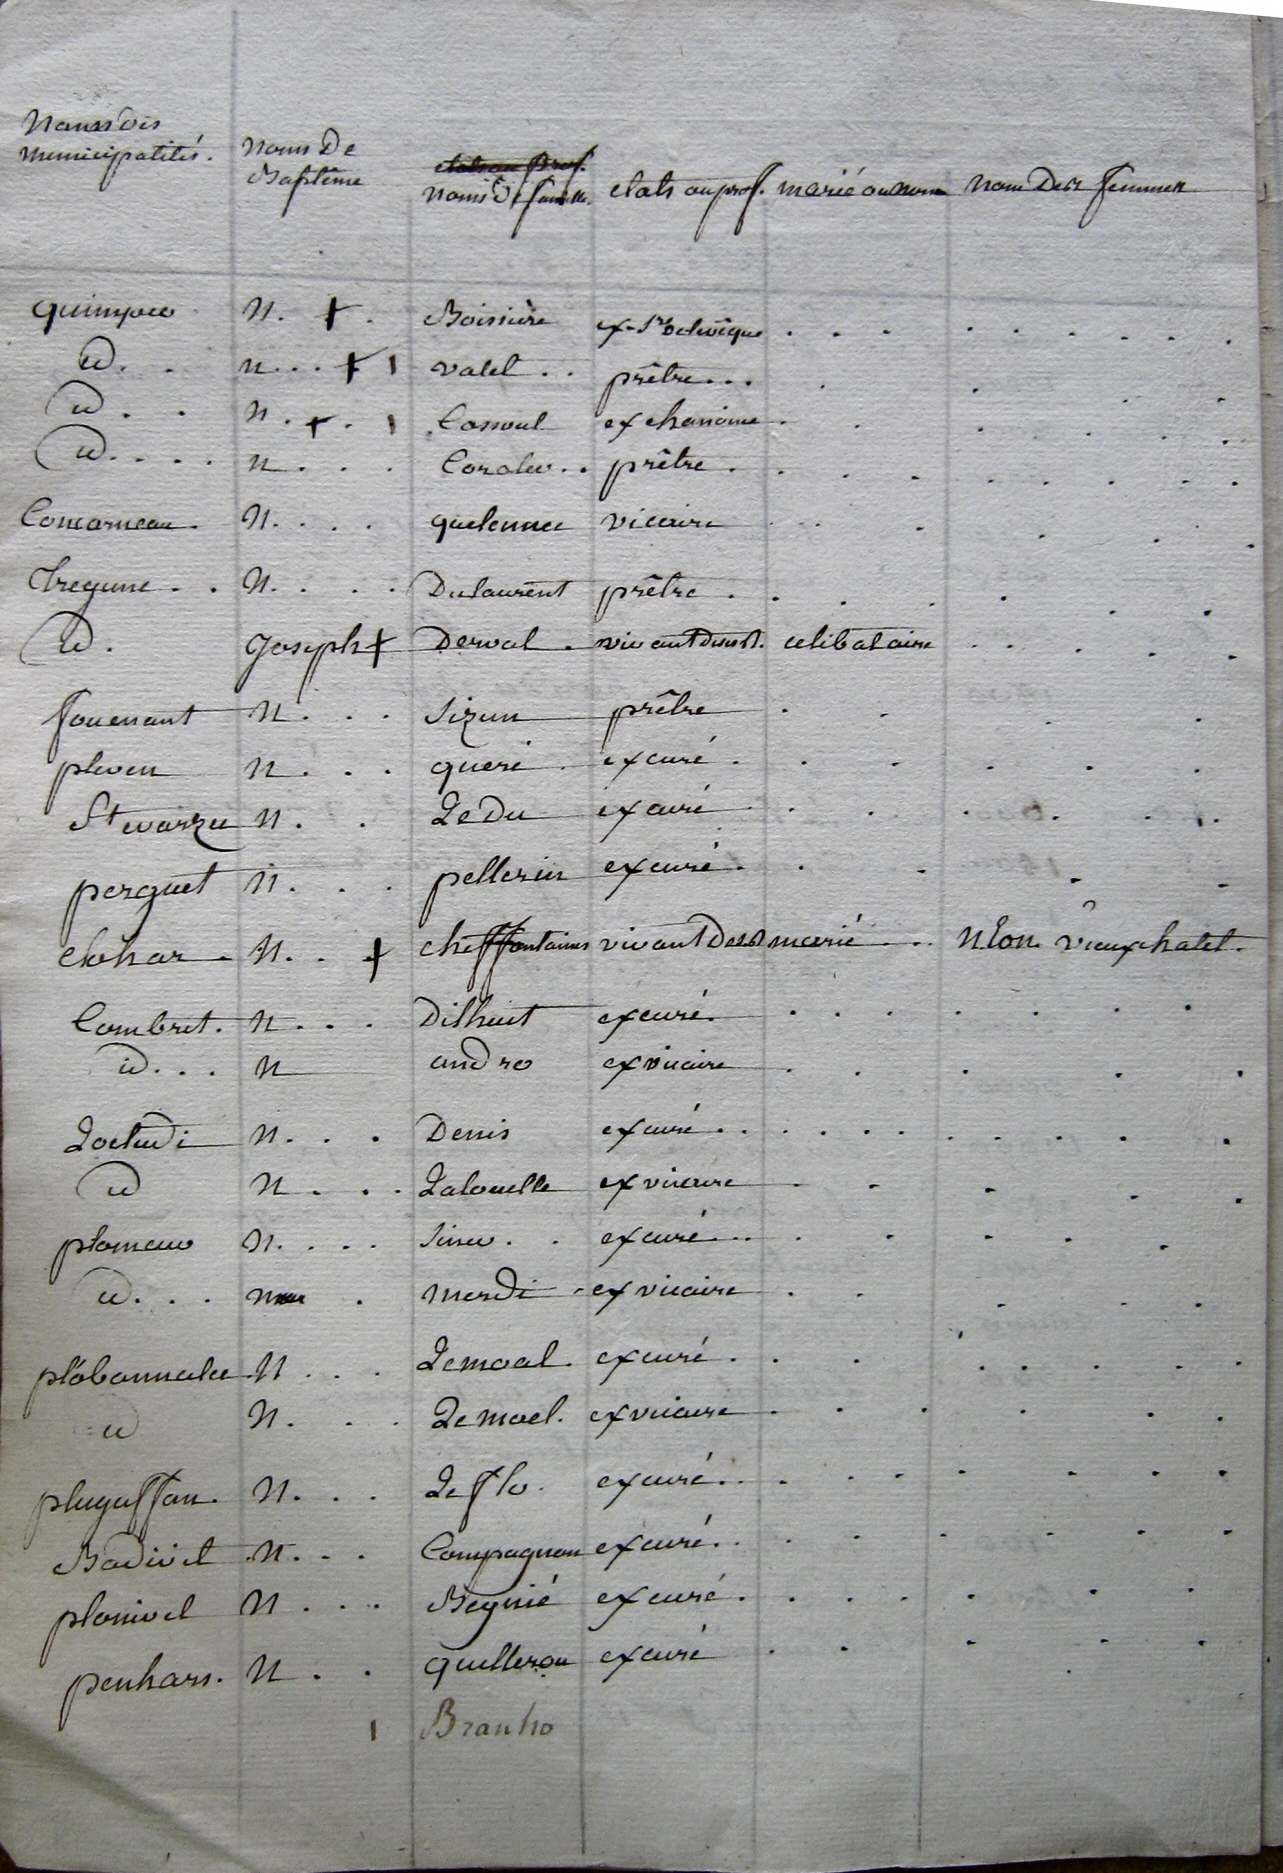 Noms des municipalités. Noms De Baptême etats ou prof. Noms De famille. etats ou prof. marié ou non nom Des femmes
quimper N. + . Boissière ex-Sre de levêque
id. . N. . . + 1 valet . . prêtre . . .
id . . N. + . 1 Cossoul ex chanoine
id. . . . N . . . Coroler . . prêtre .
Concarneau. N. . . . quelennec vicaire
Tregunc . . N. . . . Dulaurent prêtre .
id. Joseph + Derval . vivant du sn. celibataire
fouenant N . . . Sizun prêtre
pleven N . . . queré . excuré .
St evarzec N . . Le Du excuré
perguet N . . . pellerin excuré
clohar . N. . + cheffontaines vivant Desn marié . . . N. Eon vieuxchatel.
Combrit. N . . . Dilhuit excuré.
id. . . N andro exvicaire
Loctudi N . . . Denis excuré . .
id N . . . Lalouelle exvicaire
plomeur N. . . . Sinec . . excuré . .
id. . . N . merdi - exvicaire
plobannalec N . . . Lemoal . excuré .
id N. . . Lemoel. exvicaire
plugaffan. N. . . Le flo . excuré. .
Bodivit N. . . Compagnon excuré. .
plonivel N . . . Begnié excuré .
penhars. N . . quillerou excuré
1 Branho